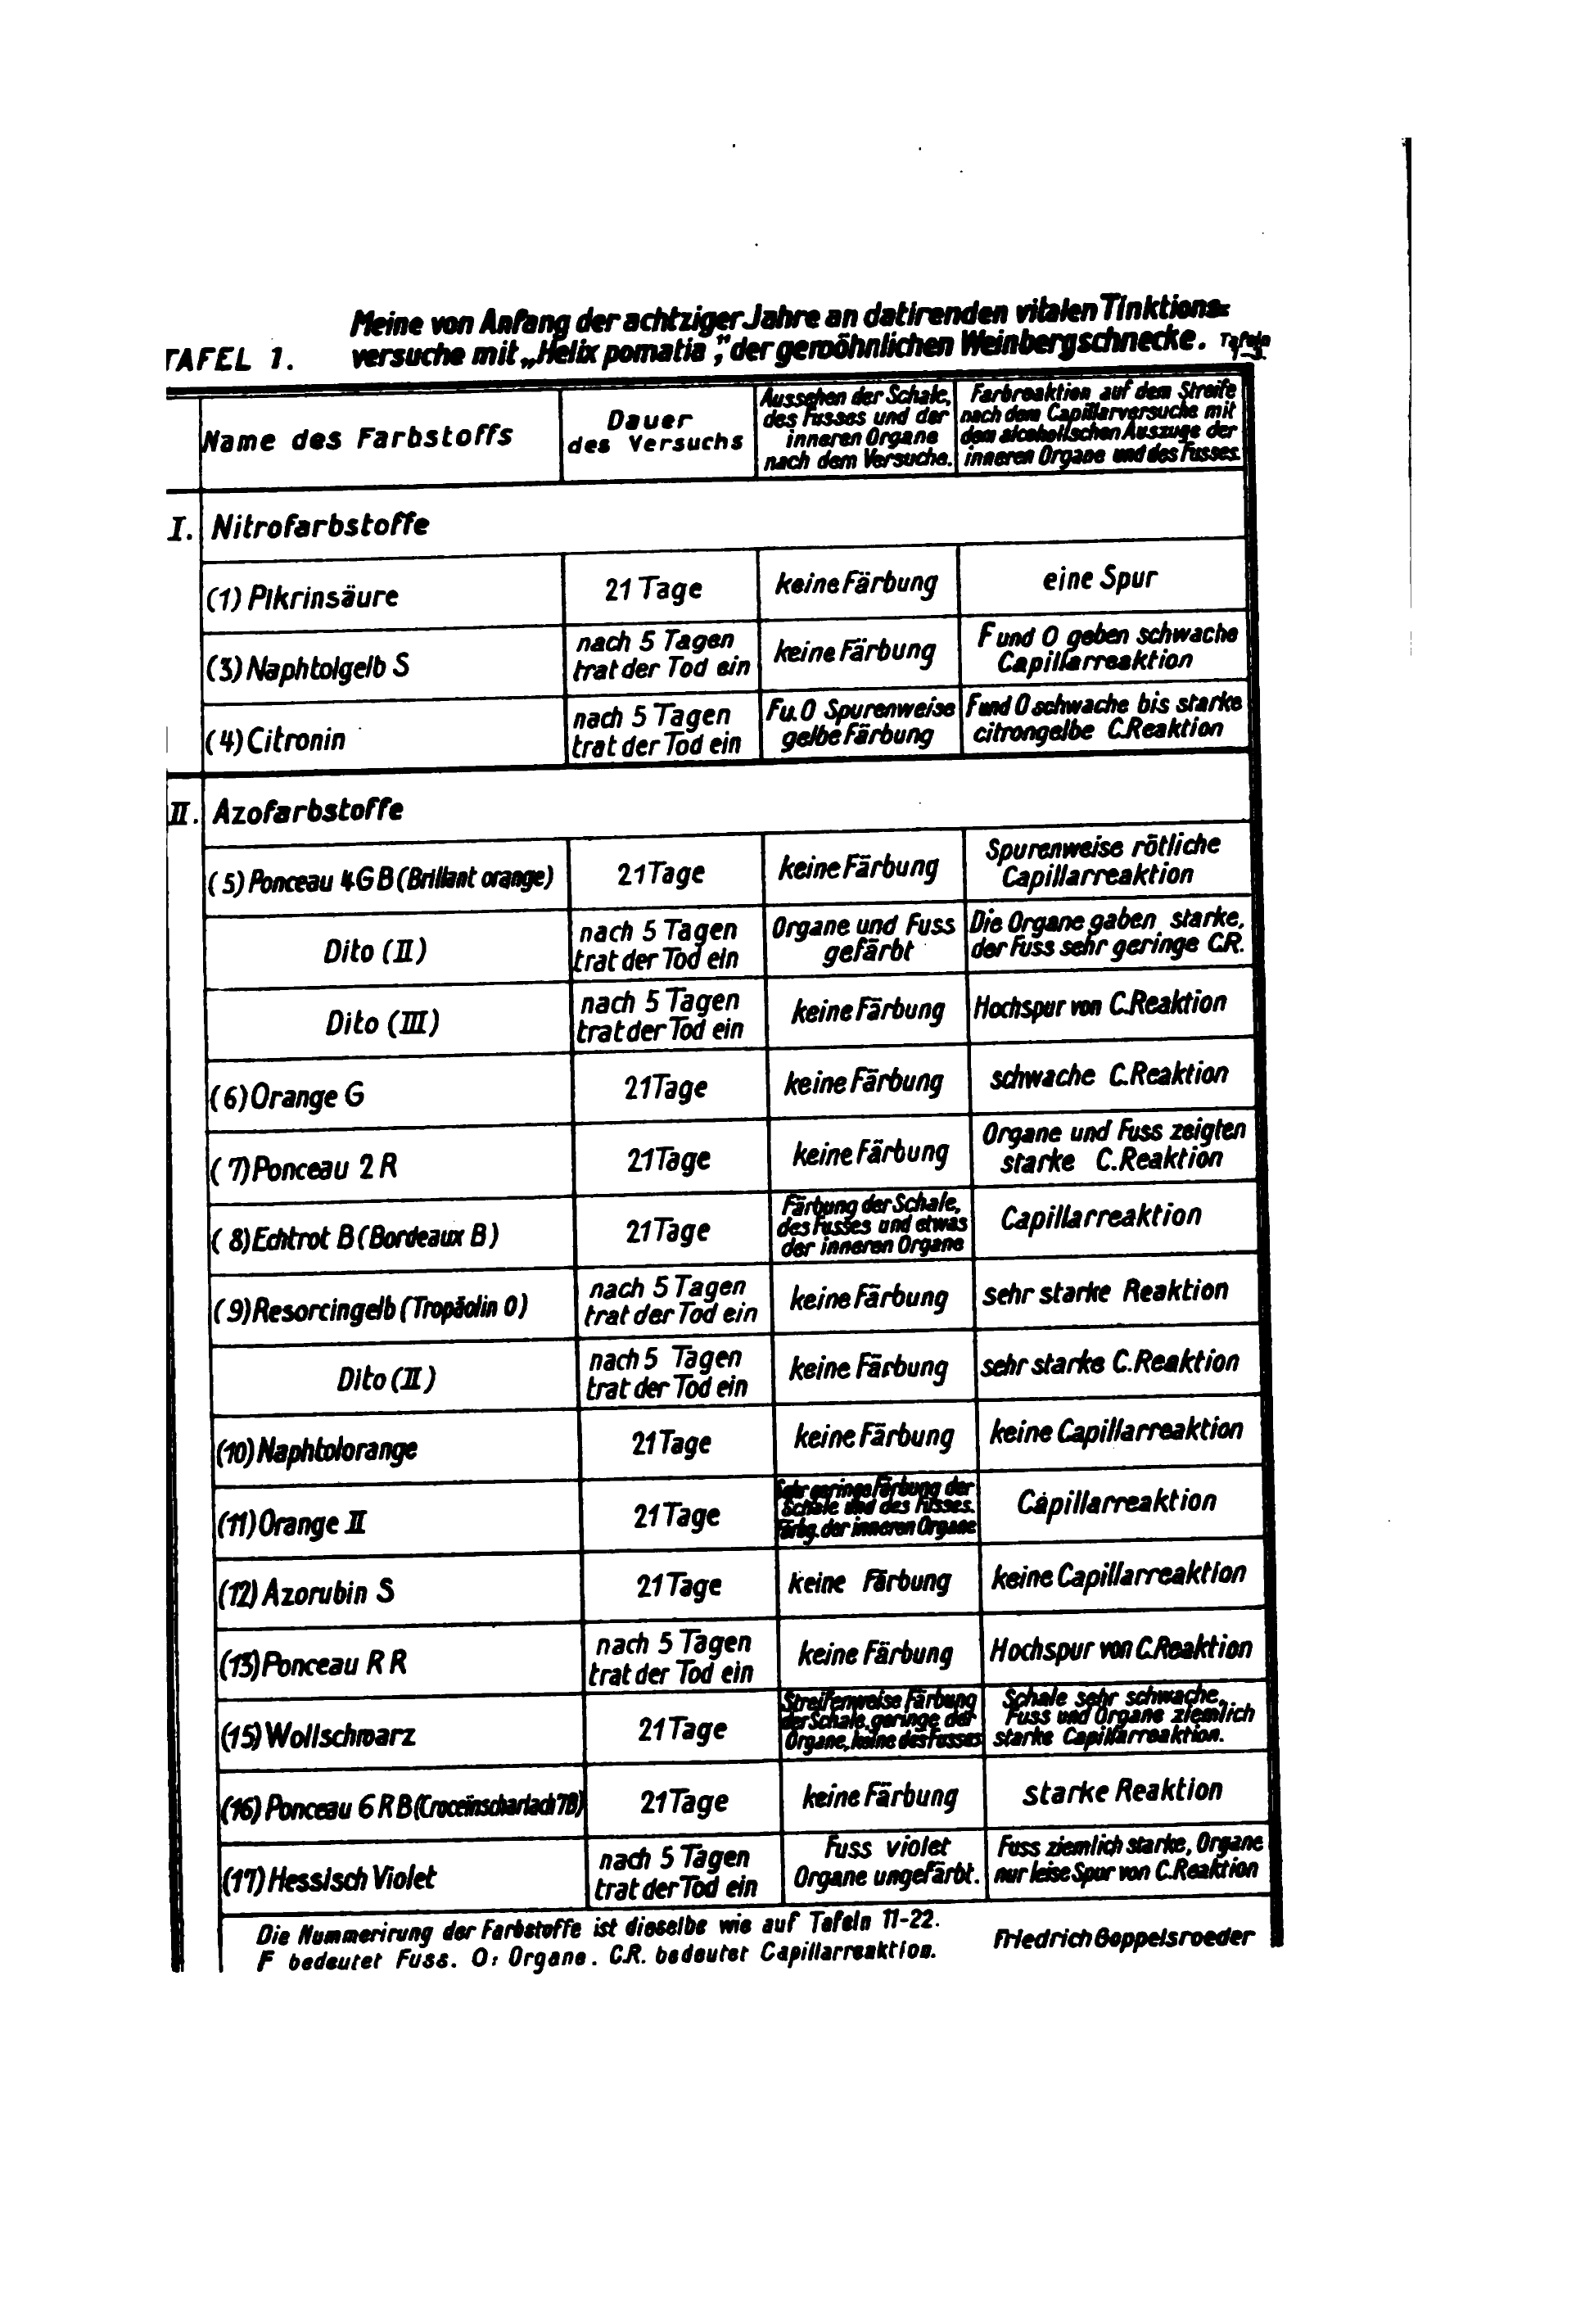 Meine von Anfang der achtziger Jahre an datirenden vitalen Tinktions=
TAFEL 1. versuche mit „Helix pomatia“, der gewöhnlichen Weinbergschnecke. Tafeln
1-3.
Name des Farbstoffs
Dauer
des Versuchs
Aussehen der Schale,
des Fusses und der
inneren Organe
nach dem Versuche.
Farbreaktion auf dem Streife
nach dem Capillarversuche mit
dem alcoholischen Auszuge der
inneren Organe und des Fusses.
I. Nitrofarbstoffe
(1) Pikrinsäure
21 Tage
keine Färbung
eine Spur
(3) Naphtolgelb S
nach 5 Tagen
trat der Tod ein
keine Färbung
F und O geben schwache
Capillarreaktion
(4) Citronin
nach 5 Tagen
trat der Tod ein
F u. O Spurenweise
gelbe Färbung
F und O schwache bis starke
citrongelbe C.Reaktion
II. Azofarbstoffe
(5) Ponceau 4 G B (Brillant orange)
21 Tage
keine Färbung
Spurenweise rötliche
Capillarreaktion
Dito (II)
nach 5 Tagen
trat der Tod ein
Organe und Fuss
gefärbt
Die Organe gaben starke,
der Fuss sehr geringe C.R.
Dito (III)
nach 5 Tagen
trat der Tod ein
keine Färbung
Hochspur von C.Reaktion
(6) Orange G
21 Tage
keine Färbung
schwache C.Reaktion
(7) Ponceau 2 R
21 Tage
keine Färbung
Organe und Fuss zeigten
starke C.Reaktion
(8) Echtrot B (Bordeaux B)
21 Tage
Färbung der Schale,
des Fusses und etwas
der inneren Organe
Capillarreaktion
(9) Resorcingelb (Tropäolin O)
nach 5 Tagen
trat der Tod ein
keine Färbung
sehr starke Reaktion
Dito (II)
nach 5 Tagen
trat der Tod ein
keine Färbung
sehr starke C.Reaktion
(10) Naphtolorange
21 Tage
keine Färbung
keine Capillarreaktion
(11) Orange II
21 Tage
Sehr geringe Färbung der
Schale und des Fusses.
Färbg. der inneren Organe
Capillarreaktion
(12) Azorubin S
21 Tage
keine Färbung
keine Capillarreaktion
(13) Ponceau R R
nach 5 Tagen
trat der Tod ein
keine Färbung
Hochspur von C.Reaktion
(15) Wollschwarz
21 Tage
Streifenweise Färbung
der Schale, geringe der
Organe, keine des Fusses
Schale sehr schwache,
Fuss und Organe ziemlich
starke Capillarreaktion.
(16) Ponceau 6 R B (Croceïnscharlach 7B)
21 Tage
keine Färbung
starke Reaktion
(17) Hessisch Violet
nach 5 Tagen
trat der Tod ein
Fuss violet
Organe ungefärbt.
Fuss ziemlich starke, Organe
nur leise Spur von C.Reaktion
Die Nummerirung der Farbstoffe ist dieselbe wie auf Tafeln 11-22.
F bedeutet Fuss. O: Organe. C.R. bedeutet Capillarreaktion.
Friedrich Goppelsroeder